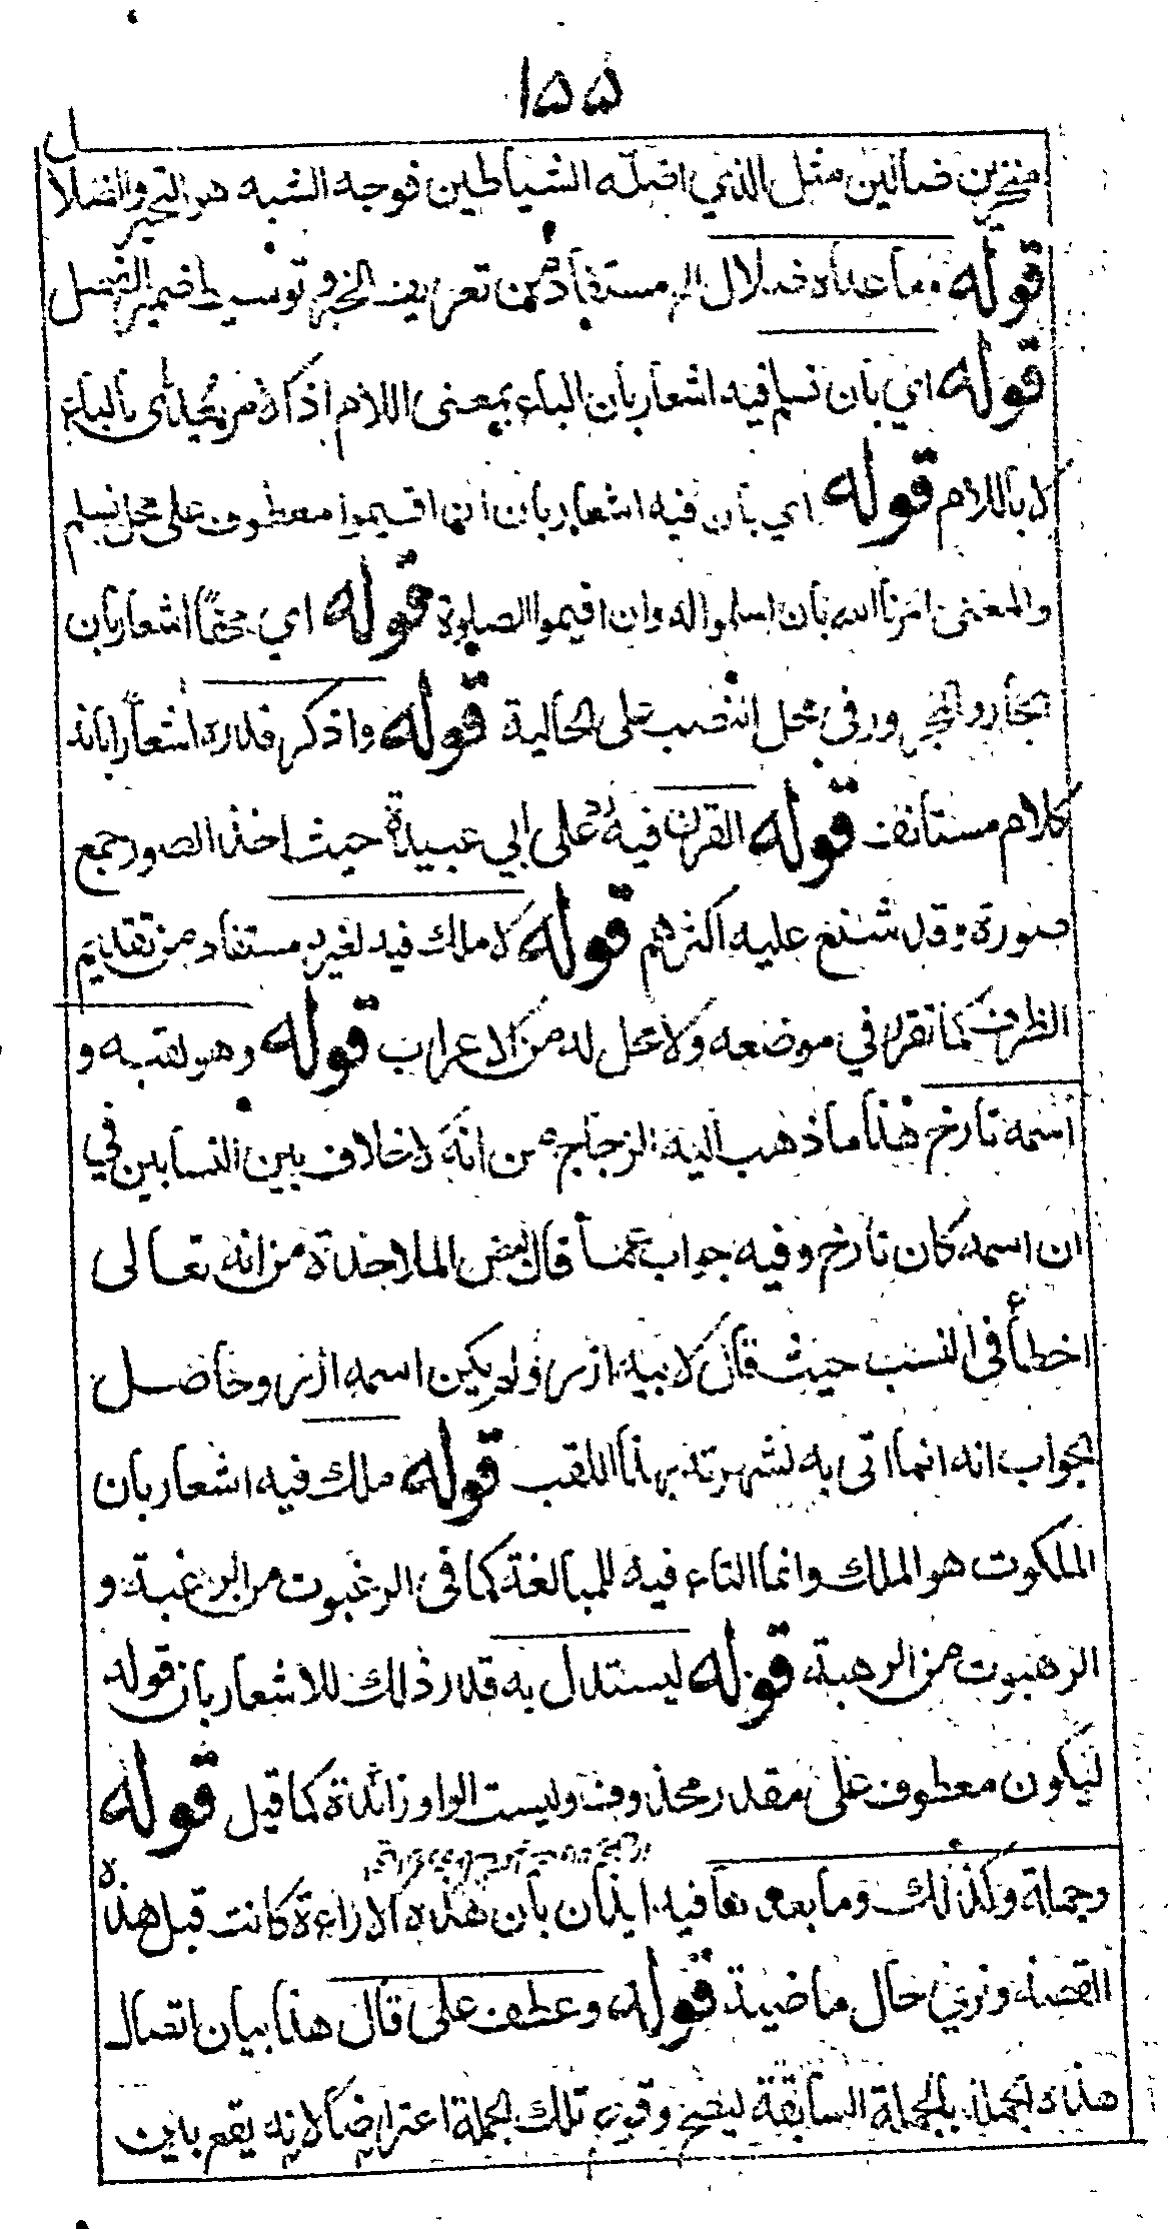 ١٥٥
متحيرين ضالين مثل الذي اضله الشياطين فوجه الشبه هو التحير والضلال
قوله وما عداه ضلال الخ مستفاد من تعريف الخبر وتوسيط ضمير الفصل
قوله اي بان نسلم فيه اشعار بان الباء بمعنى اللام اذ الامر يتعدى بالباء
لا باللام قوله اي بان فيه اشعار بان ان اقيموا معطوف على محل نسلم
والمعنى امرنا الله بان اسلموا له وان اقيموا الصلوة قوله اي محقا اشعار بان
الجار والمجرور في محل النصب على الحالية قوله واذكر قدره اشعارا بانه
كلام مستانف قوله القرن فيه رد على ابي عبيدة حيث اخذ الصور جمع
صورة وقد شنع عليه اكثرهم قوله لا ملك فيه لغيره مستفاد من تقديم
الظرف كما تقرر في موضعه ولا محل له من الاعراب قوله وهو لقبه و
اسمه تارخ هذا ما ذهب اليه الزجاج من انه لا خلاف بين النسابين في
ان اسمه كان تارخ وفيه جواب عما قال بعض الملاحدة من انه تعالى
اخطأ في النسب حيث قال لابيه ازر ولم يكن اسمه ازر وحاصل
الجواب انه انما اتى به لشهرته بهذا اللقب قوله ملك فيه اشعار بان
الملكوت هو الملك وانما التاء فيه للمبالغة كما في الرغبوت من الرغبة و
الرهبوت من الرهبة قوله ليستدل به قدر ذلك للاشعار بان قوله
ليكون معطوف على مقدر محذوف وليست الواو زائدة كما قيل قوله
وجملة وكذلك وما بعدها فيه ايذان بان هذه الاراءة كانت قبل هذه
القصة ونري حال ماضية قوله وعطف على قال هذا بيان اتصال
هذه الجملة بالجملة السابقة ليصح وقوع تلك الجملة اعتراضا لانه يقع بين